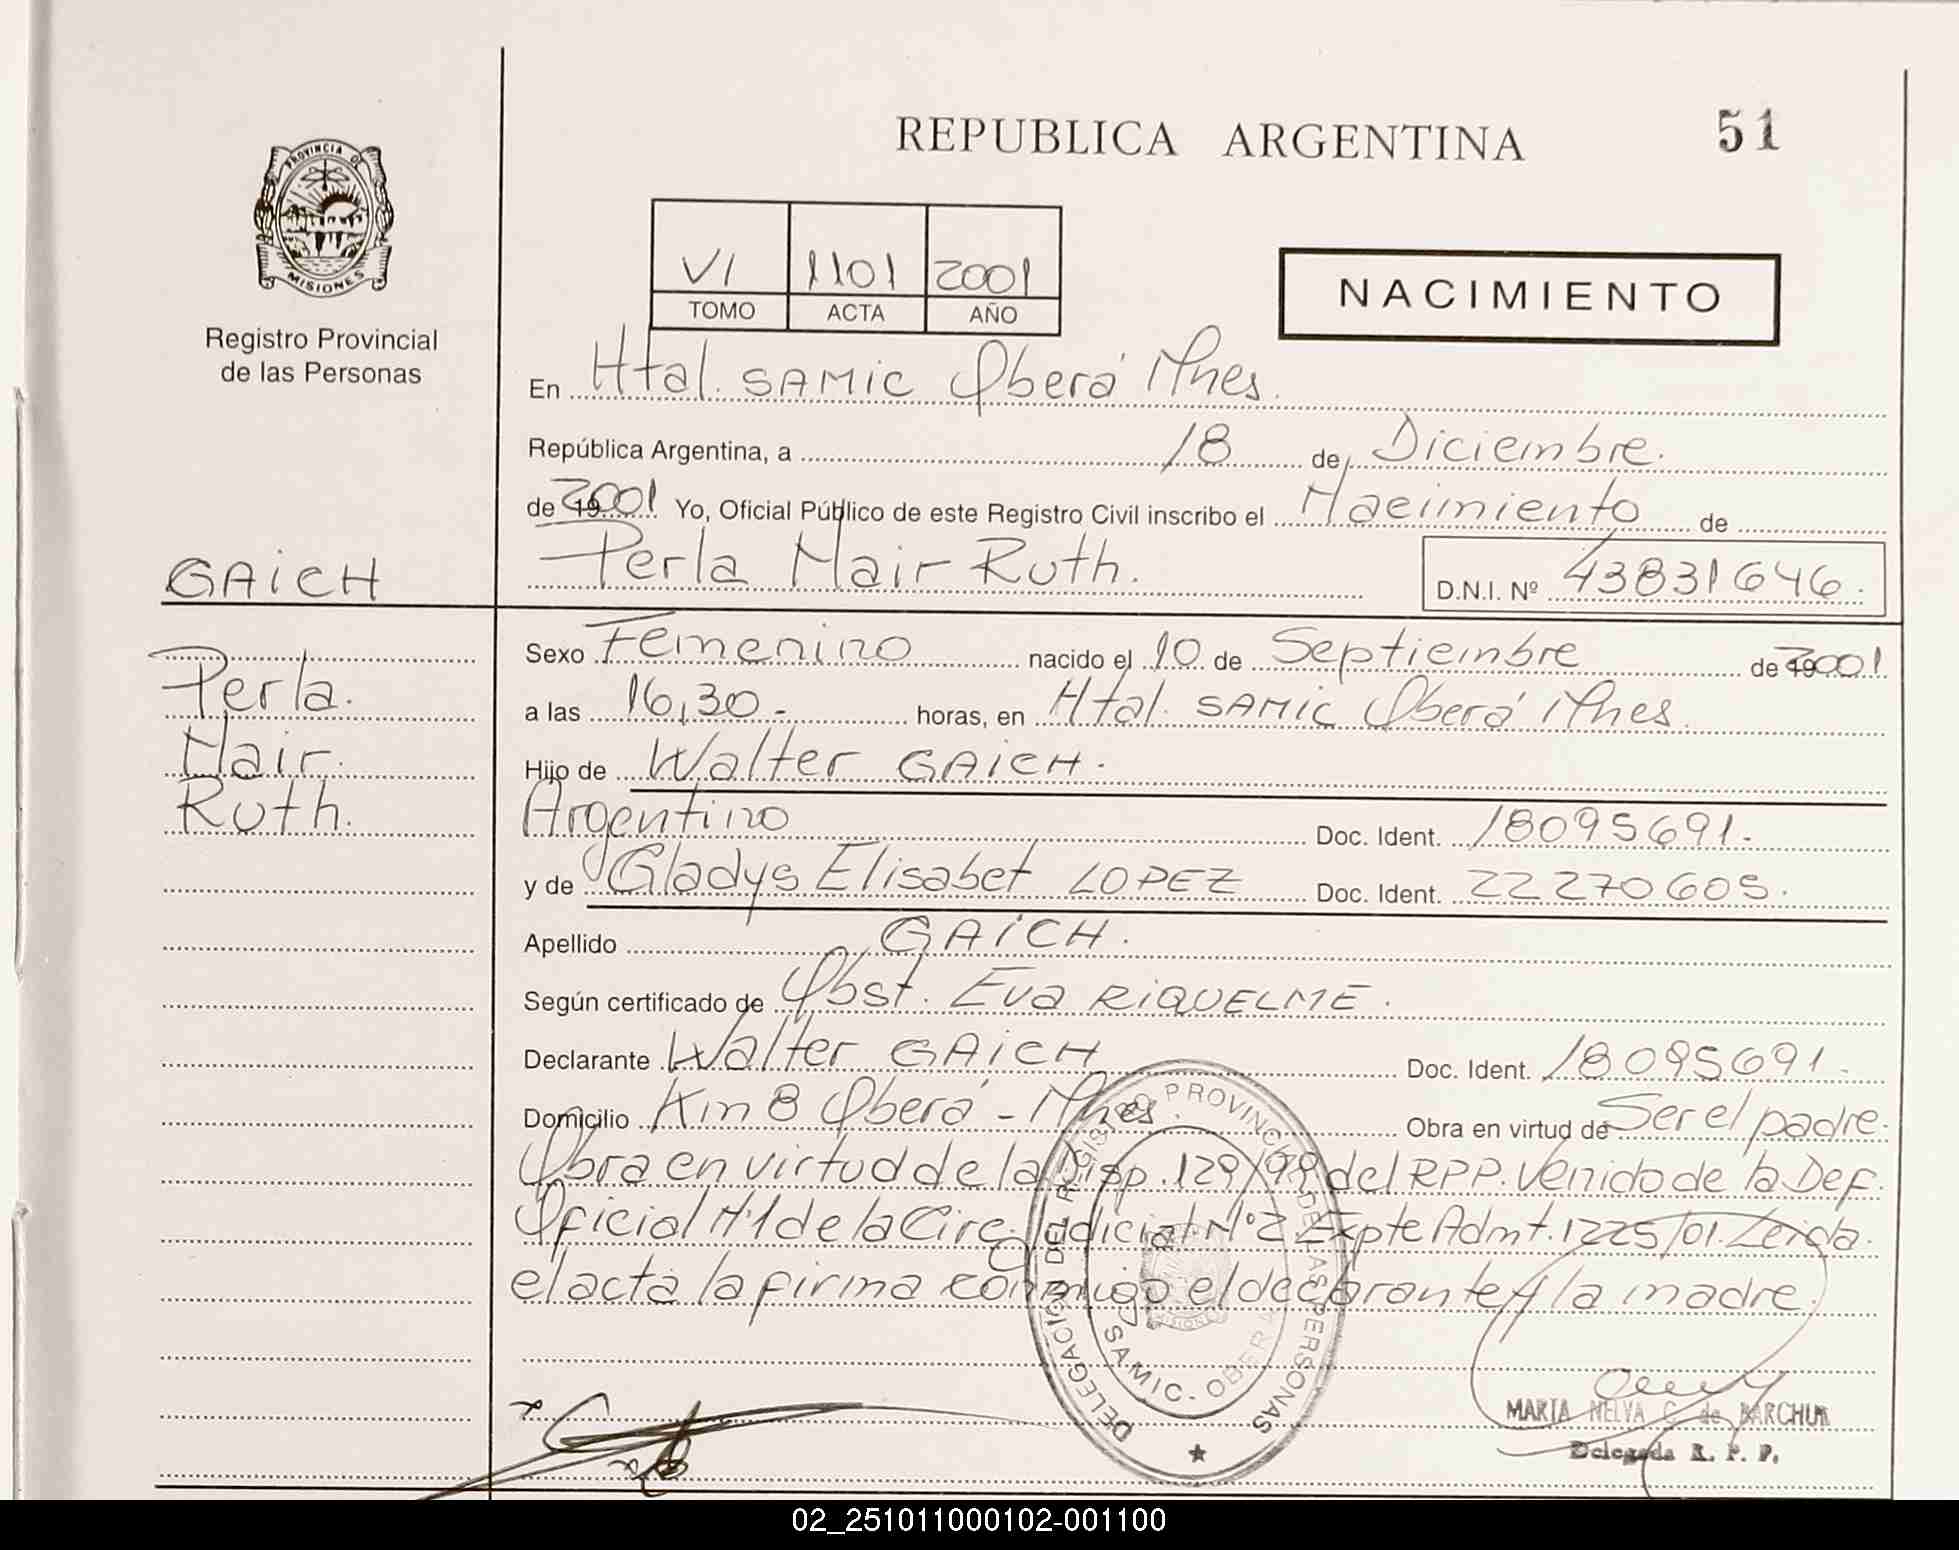 REPUBLICA ARGENTINA
51
PROVINCIA DE
MISIONES
Registro Provincial
de las Personas
VI 1101 2001
TOMO ACTA AÑO
NACIMIENTO
En Htal. SAMIC Oberá Mnes.
República Argentina, a 18 de Diciembre.
de 2001 Yo, Oficial Público de este Registro Civil inscribo el Nacimiento de
GAICH
Perla Nair Ruth.
D.N.I. Nº 43831646.
Perla.
Nair.
Ruth.
Sexo Femenino nacido el 10 de Septiembre de 2001
a las 16,30- horas, en Htal. SAMIC Oberá Mnes.
Hijo de Walter GAICH.
Argentino Doc. Ident. 18095691.
y de Gladys Elisabet LOPEZ Doc. Ident. 22270605.
Apellido GAICH.
Según certificado de Obst. Eva RIQUELME.
Declarante Walter GAICH Doc. Ident. 18095691.
Domicilio Km 8 Oberá - Mnes. Obra en virtud de Ser el padre.
Obra en virtud de la Disp. 129/98 del RPP. Venido de la Def.
Oficial N°1 de la Circ. Judicial N°2 Expte Admt. 1225/01. Leida
el acta la firma conmigo el declarante y la madre.
DELEGACION DEL REGISTRO PROVINCIAL DE LAS PERSONAS
SAMIC - OBERA
MISIONES
MARIA NELVA C. de BARCHUK
Delegada R. P. P.
02_251011000102-001100